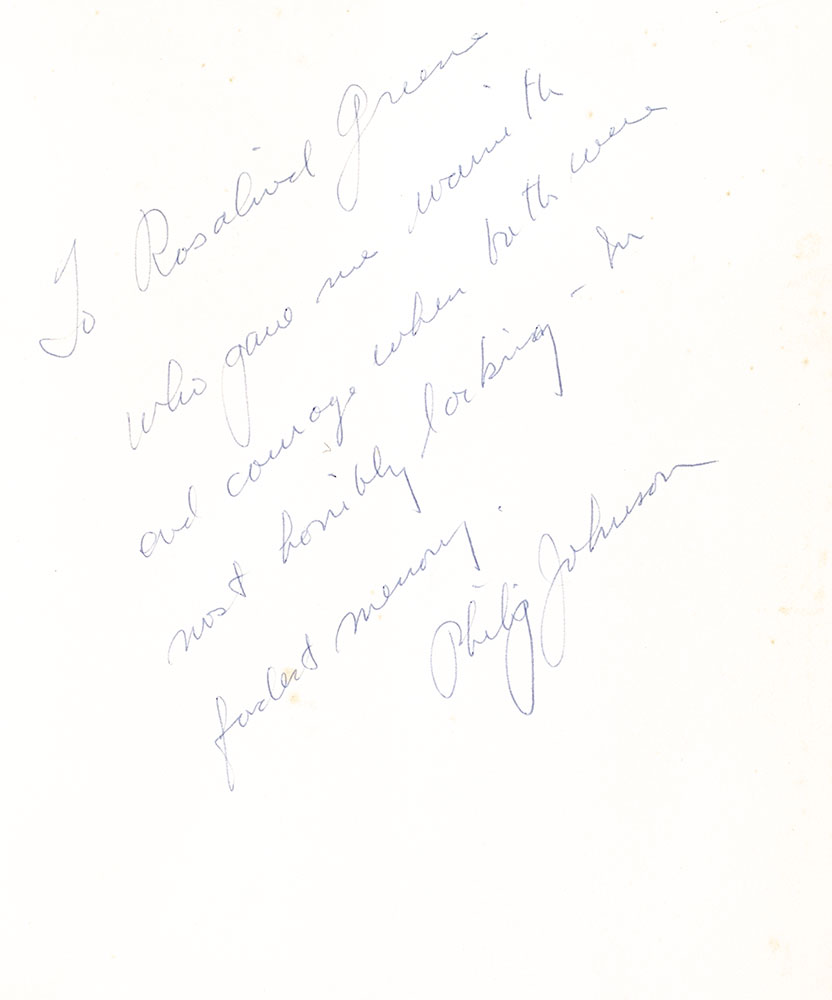 To Rosalind Greene
who gave me warmth
and courage when both were
most horribly lacking - In
fondest memory.
Philip Johnson